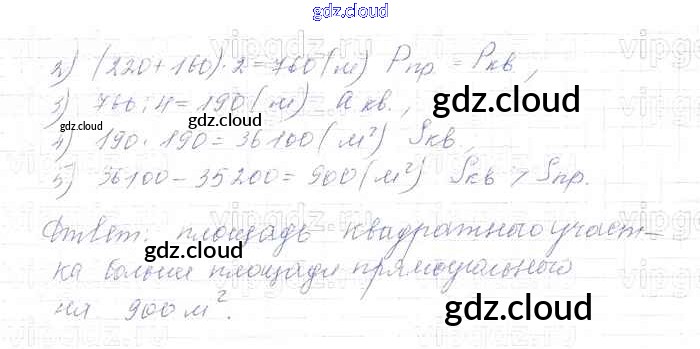 gdz.cloud
2) (220+160)·2=760(м) Pпр. = Pкв,
3) 760:4=190(м) a кв.,
gdz.cloud
gdz.cloud
4) 190·190=36100(м²) Sкв,
5) 36100-35200=900(м²) Sкв > Sпр.
Ответ: площадь квадратного участ-
gdz.cloud
ка больше площади прямоугольного
на 900 м².
gdz.cloud